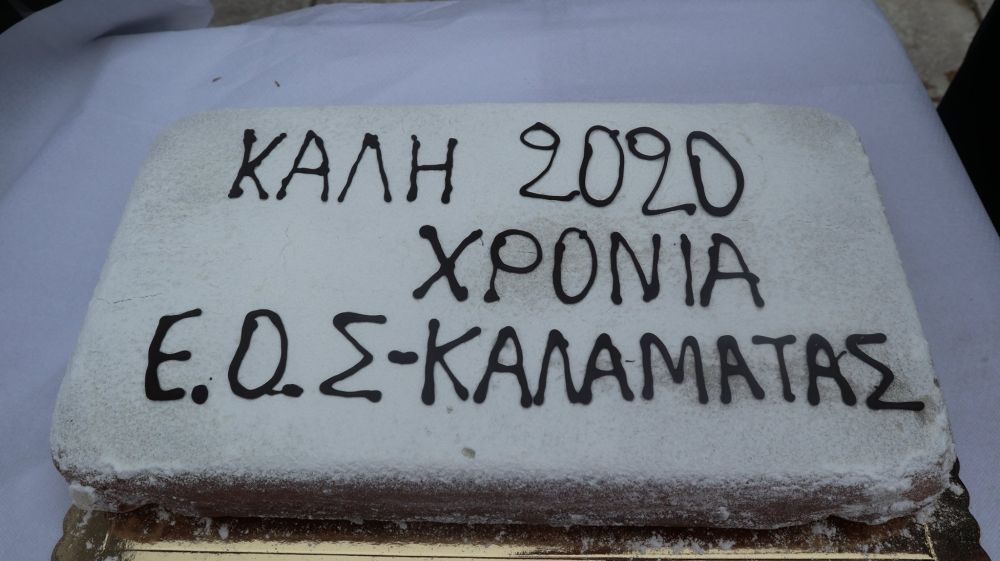 ΚΑΛΗ 2020
ΧΡΟΝΙΑ
Ε.Ο.Σ-ΚΑΛΑΜΑΤΑΣ